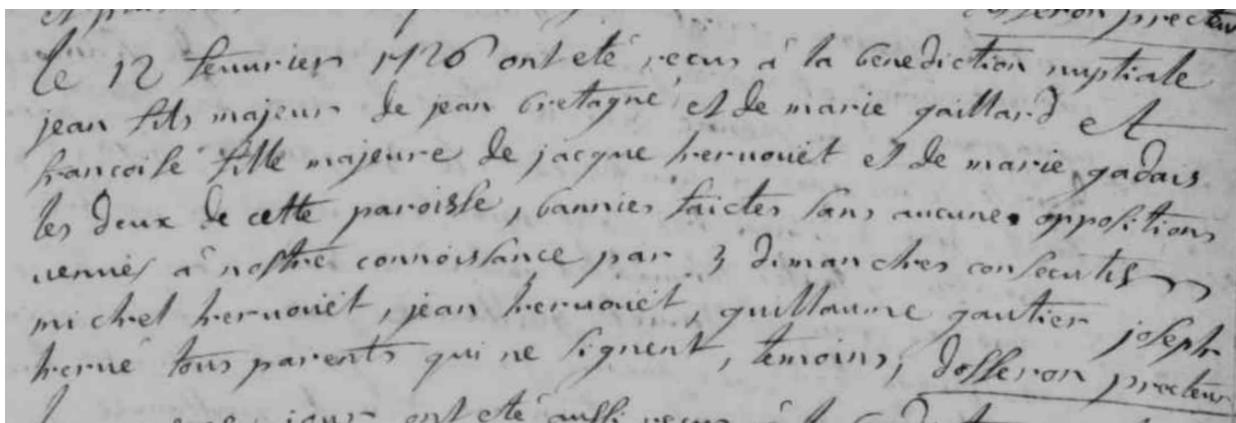 dosseron precteur
le 12 feuurier 1726 ont eté recus à la benediction nuptiale
jean fils majeur de jean bretagne et de marie gaillard et
francoise fille majeure de jacque heruouët et de marie gadais
les deux de cette paroisse, bannies faictes sans aucune oppositions
venue à nostre connoissance par 3 dimanches consecutifs
michel heruouët, jean heruouët, guillaume gautier joseph
herué tous parents qui ne signent, temoins, dosseron precteur
jour ont eté aussi recus à la